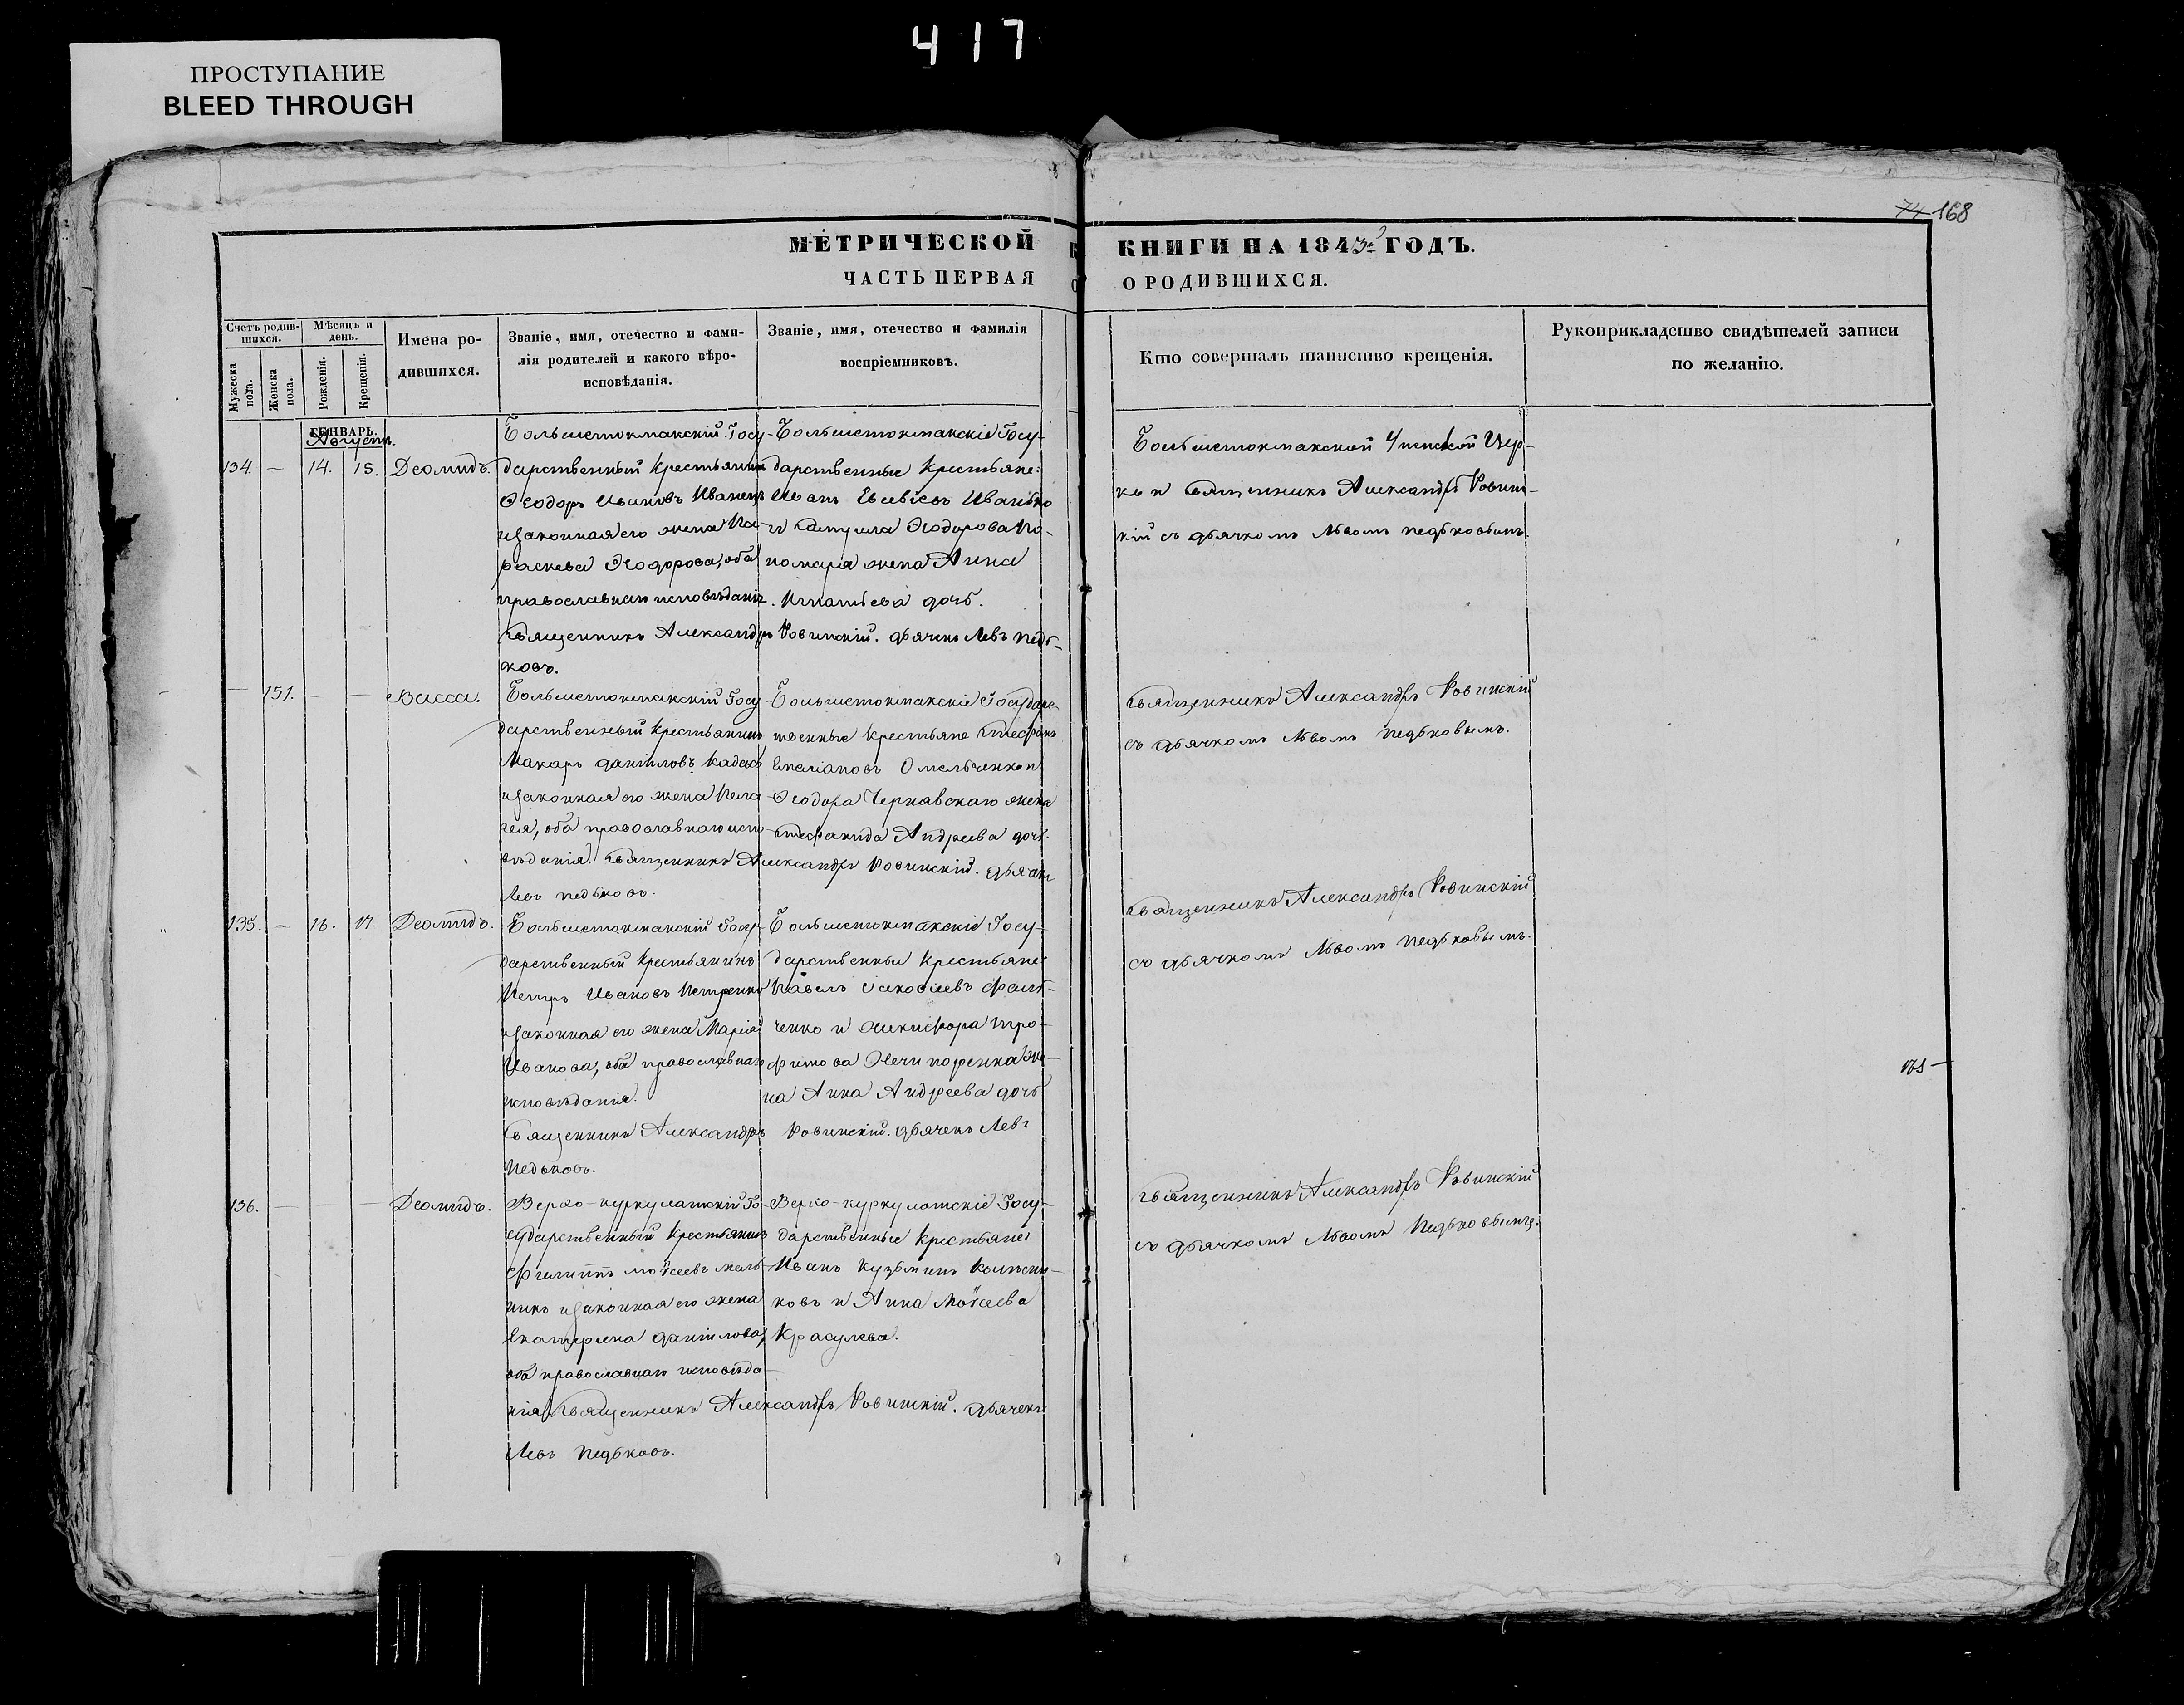 417
ПРОСТУПАНИЕ
BLEED THROUGH
74 168
МЕТРИЧЕСКОЙ КНИГИ НА 1843й ГОДЪ.
ЧАСТЬ ПЕРВАЯ О РОДИВШИХСЯ.
Счетъ родив-
шихся.
Мужеска пола.
Женска пола.
Мѣсяцъ и
день.
Рожденія.
Крещенія.
Имена ро-
дившихся.
Званіе, имя, отечество и фами-
лія родителей и какого вѣро-
исповѣданія.
Званіе, имя, отечество и фамилія
воспріемниковъ.
Кто совершалъ таинство крещенія.
Рукоприкладство свидѣтелей записи
по желанію.
ГЕНВАРЬ.
Августъ.
134. — 14. 15. Деомидъ.
Большетокмакскій Госу-
дарственный крестьянинъ
Ѳеодоръ Ивановъ
изаконная его жена Па-
раскева Ѳеодорова, оба
православнаго исповѣданія.
Священникъ Александръ Ровинскій. Дьячекъ Левъ Педь-
ковъ.
Большетокмакскіе Госу-
дарственные крестьяне:
Иванъ Евсѣевъ Иванько
и Ѳеодорова По-
номаря жена Анна
Игнатьева дочь.
Большетокмакской Успенской Цер-
кви Священникъ Александръ Ровинс-
кій съ дьячкомъ Львомъ Педьковымъ.
— 151. — — Васса.
Большетокмакскій Госу-
дарственный крестьянинъ
Макаръ Даниловъ
изаконная его жена Пела-
гея, оба православнаго испо-
вѣданія. Священникъ Александръ Ровинскій. Дьячекъ
Левъ Педьковъ.
Большетокмакскіе Государс-
твенные крестьяне Стефанъ
Емеліановъ Омельченко и
Ѳеодора Чернявскаго жена
Стефанида Андреева дочь.
Священникъ Александръ Ровинскій
съ дьячкомъ Львомъ Педьковымъ.
135. — 16. 17. Деомидъ.
Большетокмакскій Госу-
дарственный крестьянинъ
Петръ Ивановъ Петренко
изаконная его жена Марія
Иванова, оба православнаго
исповѣданія.
Священникъ Александръ Ровинскій. Дьячекъ Левъ
Педьковъ.
Большетокмакскіе Госу-
дарственные крестьяне:
Павелъ Іаковлевъ
ченко и Никифора Тро-
фимова Нечипоренка же-
на Анна Андреева дочь
Священникъ Александръ Ровинскій
съ дьячкомъ Львомъ Педьковымъ.
136. — — — Деомидъ.
Верхо-куркулатскій Го-
сударственный крестьянинъ
Филиппъ Моѵсеевъ Мель-
никъ изаконная его жена
Екатерина Данилова,
оба православнаго исповѣда-
нія. Священникъ Александръ Ровинскій. Дьячекъ
Левъ Педьковъ.
Верхо-куркулатскіе Госу-
дарственные крестьяне:
Иванъ Кузьминъ Колѣсни-
ковъ и Анна Моѵсеева
Красулева.
Священникъ Александръ Ровинскій
съ дьячкомъ Львомъ Педьковымъ.